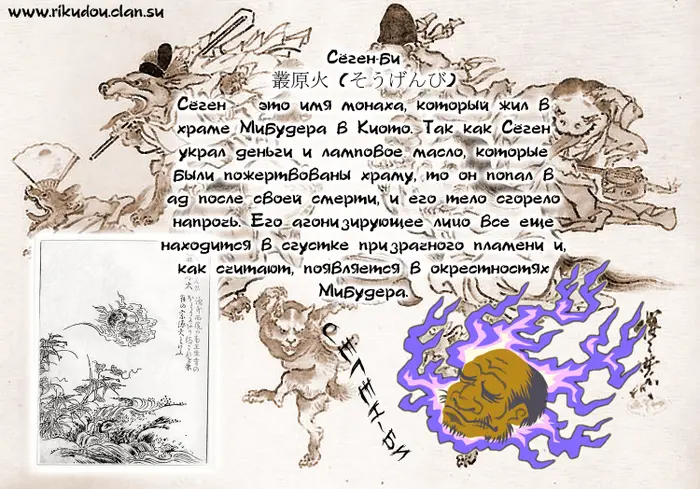 www.rikudou.clan.su
Сёген-Би
叢原火 (そうげんび)
Сёген это имя монаха, который жил в
храме МиБудера в Киото. Так как Сёген
украл деньги и ламповое масло, которые
были пожертвованы храму, то он попал в
ад после своей смерти, и его тело сгорело
напрочь. Его агонизирующее лицо все еще
находится в сгустке призрачного пламени и,
как считают, появляется в окрестностях
МиБудера.
СЁГЕН-БИ